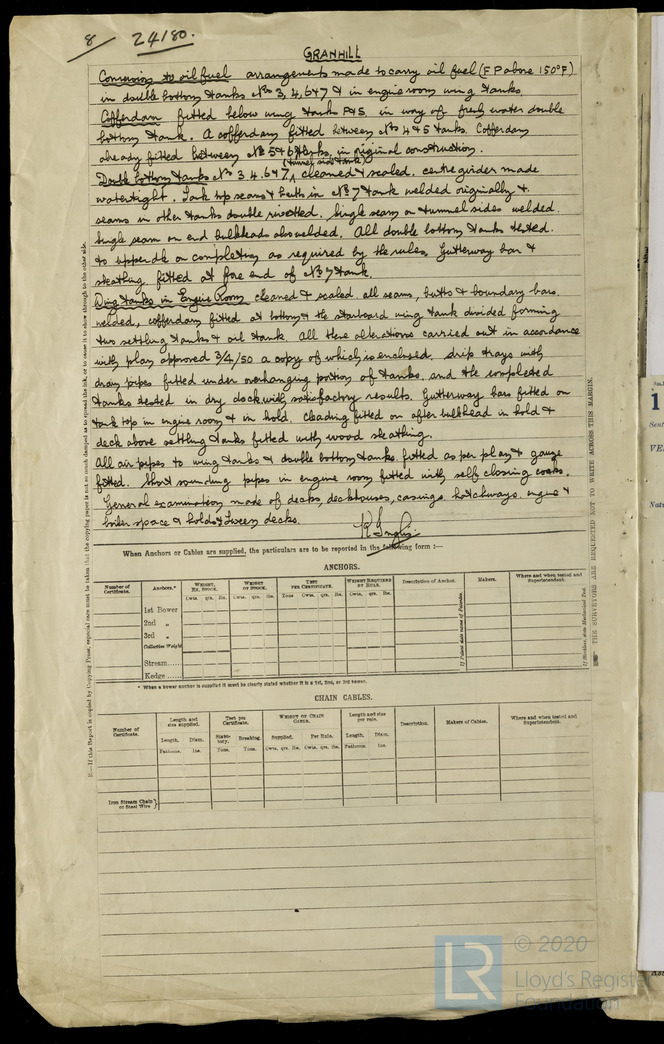 8 24180.
GRANHILL
Conversion to oil fuel arrangements made to carry oil fuel (F P above 150°F)
in double bottom tanks Nos 3, 4, 6 & 7 & in engine room wing tanks.
Cofferdam fitted below wing tanks P&S. in way of fresh water double
bottom tank. A cofferdam fitted between Nos 4 & 5 tanks. Cofferdam
already fitted between Nos 5 & 6 tanks, in original construction.
(tunnel side tanks)
Double bottom tanks Nos 3 4. 6 & 7, cleaned & scaled. centre girder made
watertight. Tank top seams & butts in No 7 tank welded originally &
seams in other tanks double rivetted. Single seam on tunnel sides welded.
Single seam on end bulkheads also welded. All double bottom tanks tested.
to upper dk on completion as required by the rules, Gutterway bar &
sheathing. fitted at fore end of No 7 tank.
Wing tanks in Engine Room cleaned & scaled. all seams, butts & boundary bars.
welded, cofferdam fitted at bottom & the starboard wing tank divided forming
two settling tanks & oil tank. All these alterations carried out in accordance
with plan approved 3/4/50 a copy of which is enclosed. drip trays with
drain pipes fitted under overhanging portion of tanks. and the completed
tanks tested in dry dock with satisfactory results. Gutterway bars fitted on
tank top in engine room & in hold. Cleading fitted on after bulkhead in hold &
deck above settling tanks fitted with wood sheathing.
All air pipes to wing tanks & double bottom tanks. fitted as per plan & gauze
fitted. Short sounding pipes in engine room fitted with self closing cocks.
General examination made of decks, deckhouses, casings. hatchways. engine &
boiler space & holds & tween decks.
When Anchors or Cables are supplied, the particulars are to be reported in the following form :—
ANCHORS.
Number of Certificate. Anchors.* WEIGHT, EX. STOCK. WEIGHT OF STOCK. TEST PER CERTIFICATE. WEIGHT REQUIRED BY RULE. Description of Anchor. Makers. Where and when tested and Superintendent.
Cwts. qrs. lbs. Cwts. qrs. lbs. Tons cwts. qrs. lbs. Cwts. qrs. lbs.
1st Bower
2nd „
3rd „
Collective Weight
Stream......
Kedge......
* When a bower anchor is supplied it must be clearly stated whether it is a 1st, 2nd, or 3rd bower.
CHAIN CABLES.
Number of Certificate. Length and size supplied. Test per Certificate. WEIGHT OF CHAIN CABLE. Length and size per rule. Description. Makers of Cables. Where and when tested and Superintendent.
Length. Diam. Statutory. Breaking. Supplied. Per Rule. Length. Diam.
Fathoms. Ins. Tons. Tons. Cwts. qrs. lbs. Cwts. qrs. lbs. Fathoms. Ins.
Iron Stream Chain or Steel Wire }
THE SURVEYORS ARE REQUESTED NOT TO WRITE ACROSS THIS MARGIN.
LR
© 2020
Lloyd's Register
Foundation